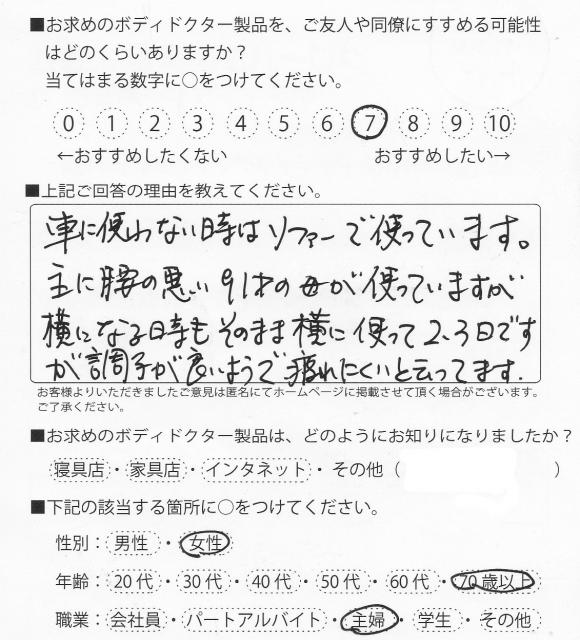 ■お求めのボディドクター製品を、ご友人や同僚にすすめる可能性
はどのくらいありますか？
当てはまる数字に○をつけてください。
0 1 2 3 4 5 6 7 8 9 10
←おすすめしたくない おすすめしたい→
■上記ご回答の理由を教えてください。
車に使わない時はソファーで使っています。
主に腰の悪い91才の母が使っていますが
横になる時もそのまま横に使って2、3日です
が調子が良いようで疲れにくいと云ってます.
お客様よりいただきましたご意見は匿名にてホームページに掲載させて頂く場合がございます。
ご了承ください。
■お求めのボディドクター製品は、どのようにお知りになりましたか？
寝具店・家具店・インタネット・その他（ ）
■下記の該当する箇所に○をつけてください。
性別：男性・女性
年齢：20代・30代・40代・50代・60代・70歳以上
職業：会社員・パートアルバイト・主婦・学生・その他